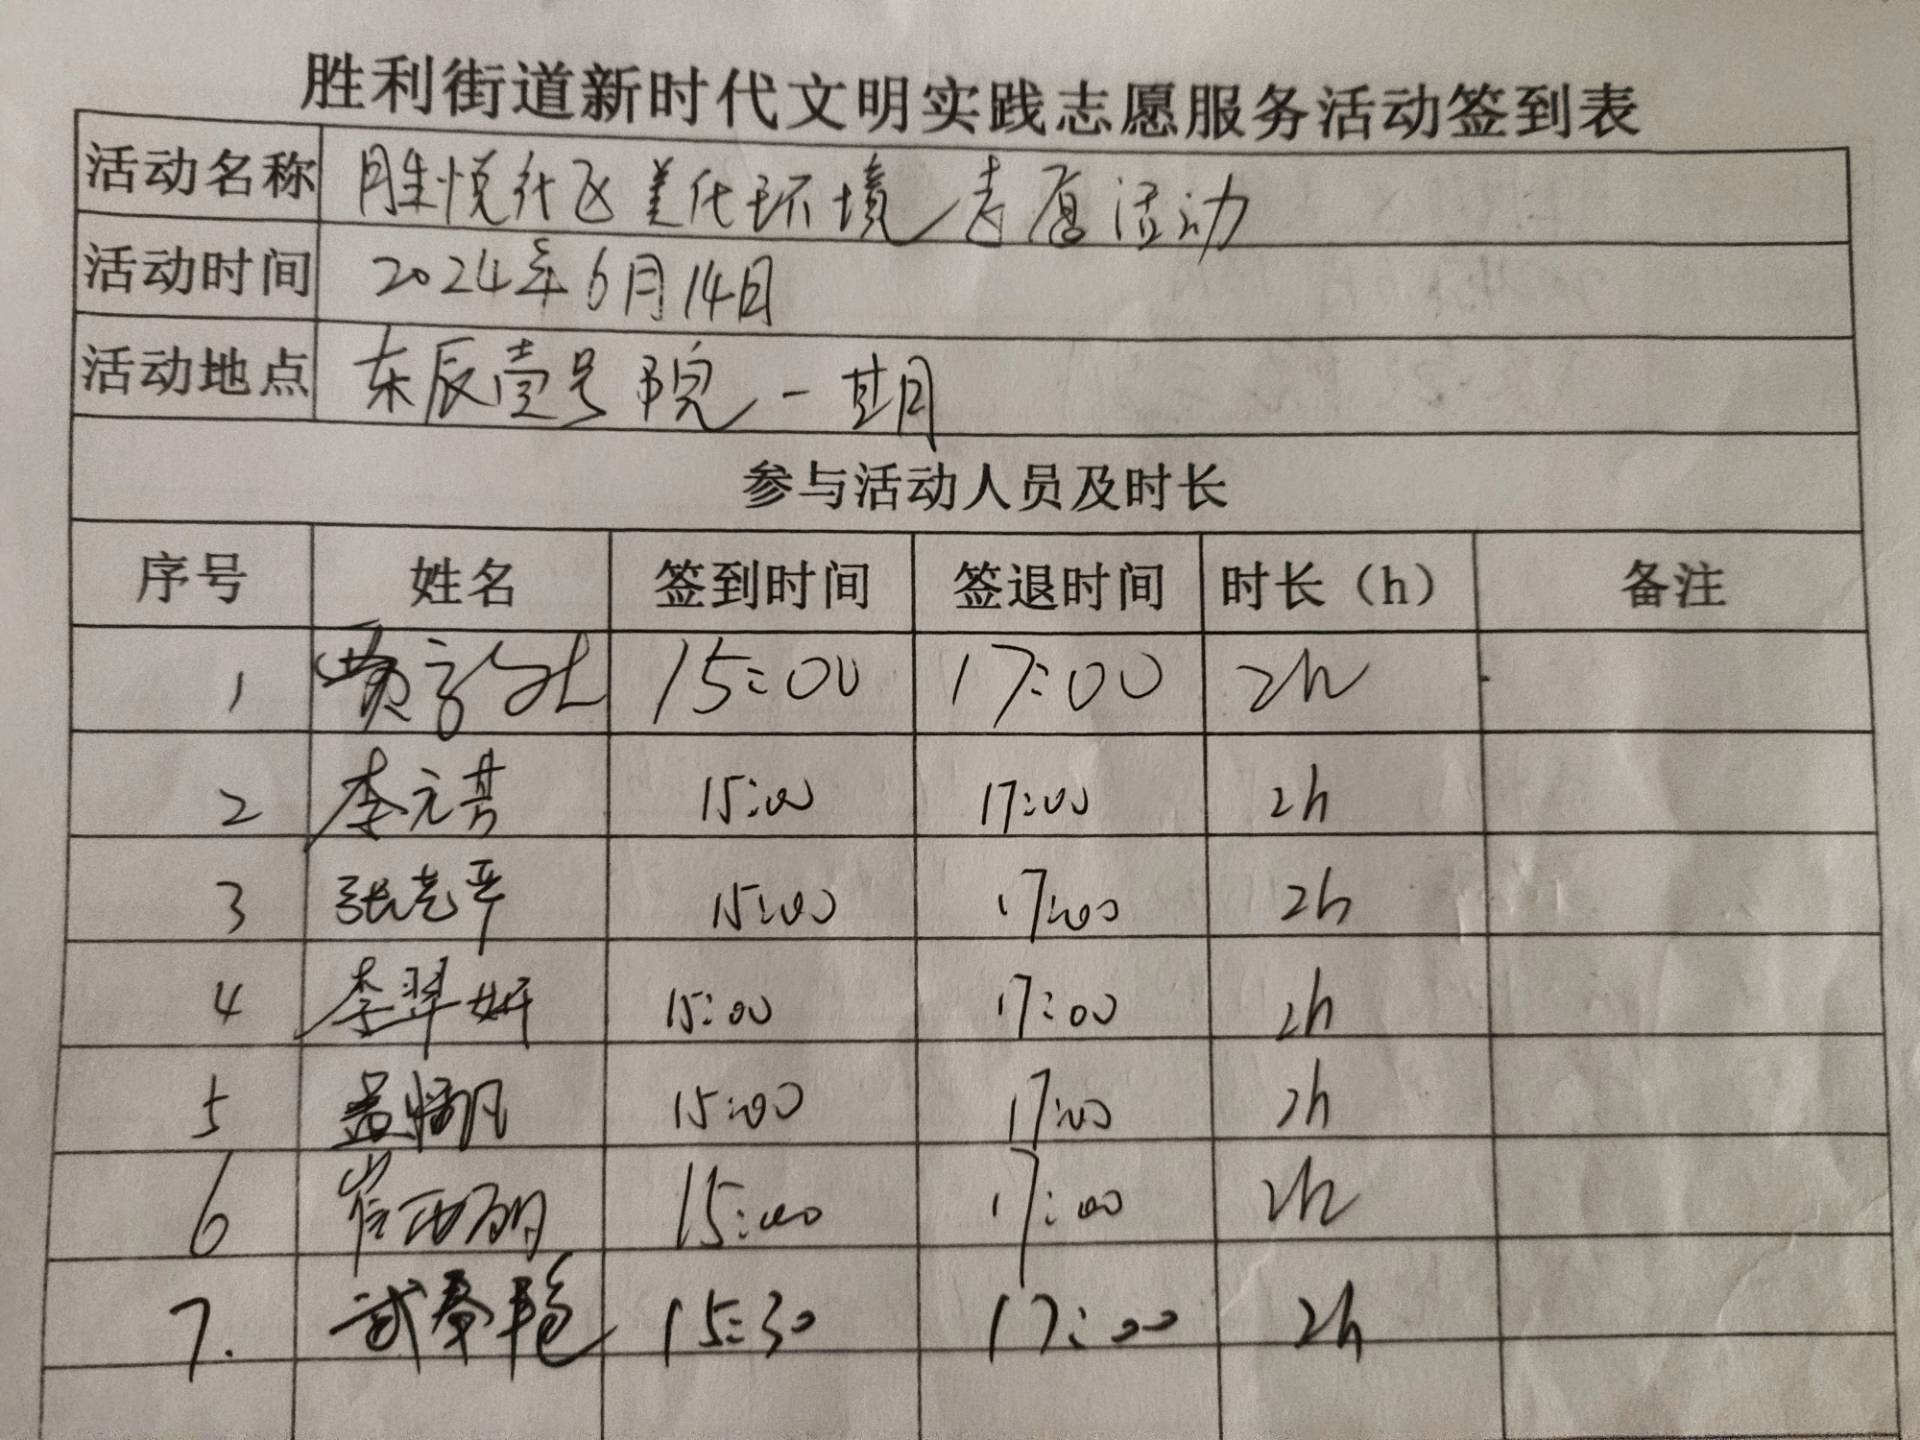 胜利街道新时代文明实践志愿服务活动签到表
活动名称 胜悦社区美化环境志愿活动
活动时间 2024年6月14日
活动地点 东辰壹号院一期
参与活动人员及时长
序号 姓名 签到时间 签退时间 时长（h） 备注
1 15:00 17:00 2h
2 李元芳 15:00 17:00 2h
3 张 平 15:00 17:00 2h
4 李翠妍 15:00 17:00 2h
5 孟 凡 15:00 17:00 2h
6 崔 15:00 17:00 2h
7. 武春艳 15:30 17:00 2h